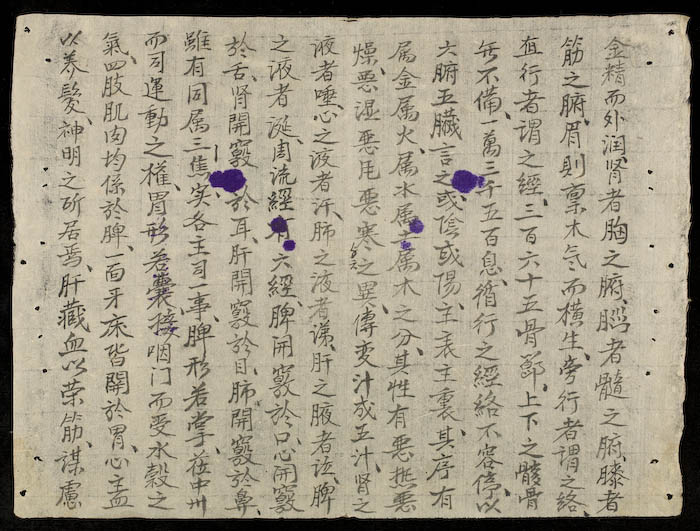 金精而外润肾者胸之腑、脛者髓之腑、膝者
筋之腑、眉則稟木气而横生、旁行者谓之絡、
直行者谓之經、三百六十五骨節、上下之骸骨
无不備、一萬三千五百息、循行之經絡不容停、以
六腑五臟言之、或陰或陽、主表主裏、其序有
属金属火、属水属土属木之分、其性有惡热惡
燥、惡湿惡風惡寒之異、傳变汁成五汁、肾之
液者唾、心之液者汗、肺之液者涕、肝之液者泣、脾
之液者涎、周流經有六經、脾開竅於口、心開竅
於舌、肾開竅於耳、肝開竅於目、肺開竅於鼻、
雖有同属三焦、实各主司一事、脾形若掌、在中州
而司運動之權、胃形若囊、接咽门而受水穀之
氣、四肢肌肉均係於脾、一面牙床皆關於胃、心主血
以养髮、神明之所居焉、肝藏血以荣筋、谋慮